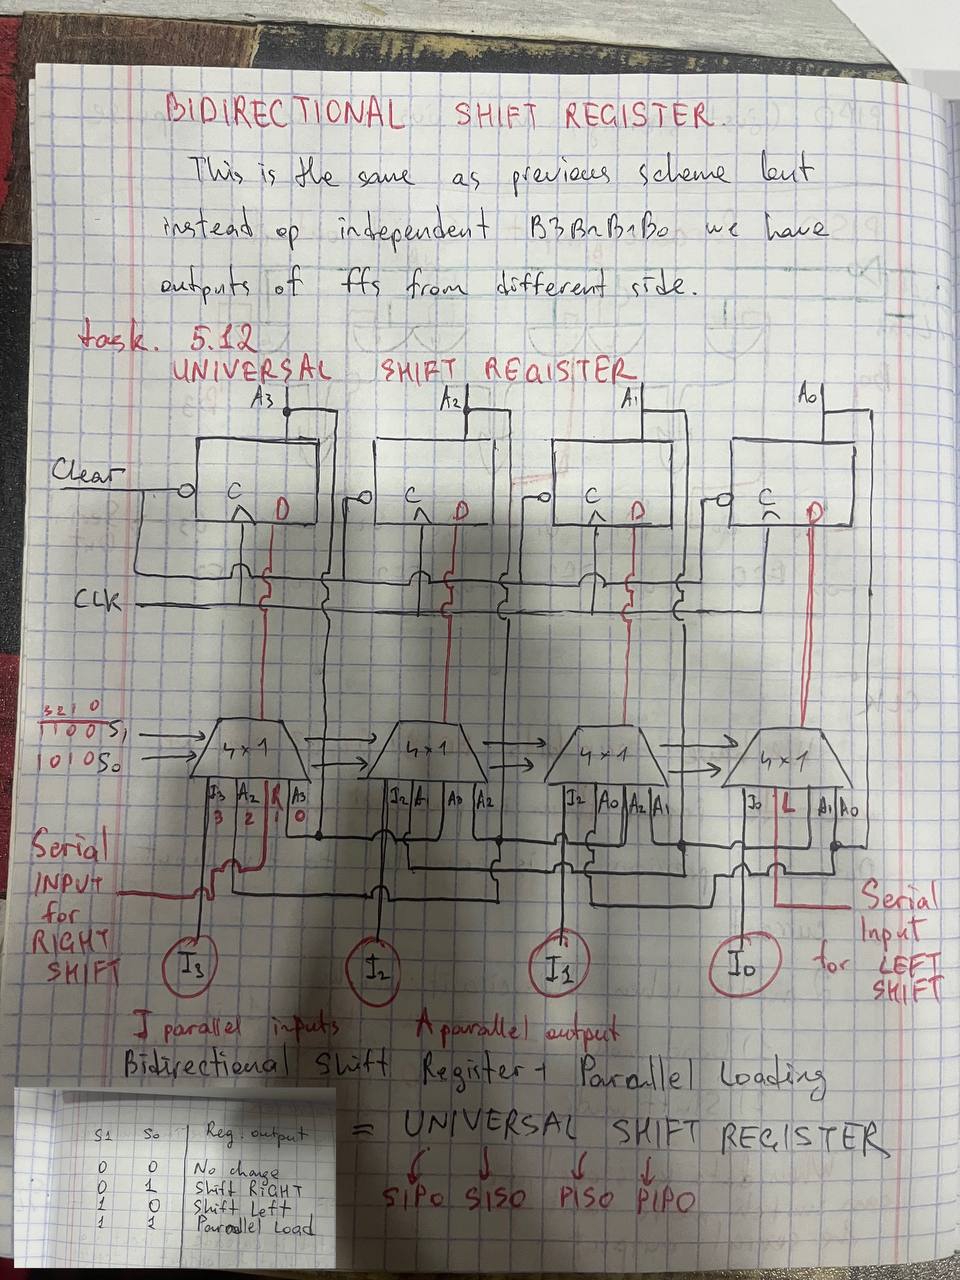 BIDIRECTIONAL SHIFT REGISTER.
This is the same as previous scheme but
instead op independent B3B2B1B0 we have
outputs of ffs from different side.
task. 5.12
UNIVERSAL SHIFT REGISTER
A3 A2 A1 A0
Clear
C D C D C D C D
CLK
3 2 1 0
1 1 0 0 S1
1 0 1 0 S0
4×1 4×1 4×1 4×1
I3 A2 R A3 I2 A1 A3 A2 I2 A0 A2 A1 I0 L A1 A0
3 2 1 0
Serial
INPUT
for
RIGHT
SHIFT
Serial
Input
for LEFT
SHIFT
I3 I2 I1 I0
I parallel inputs A parallel output
Bidirectional Shift Register + Parallel Loading
= UNIVERSAL SHIFT REGISTER
SIPO SISO PISO PIPO
S1 S0 Reg. output
0 0 No change
0 1 Shift RIGHT
1 0 Shift Left
1 1 Parallel Load